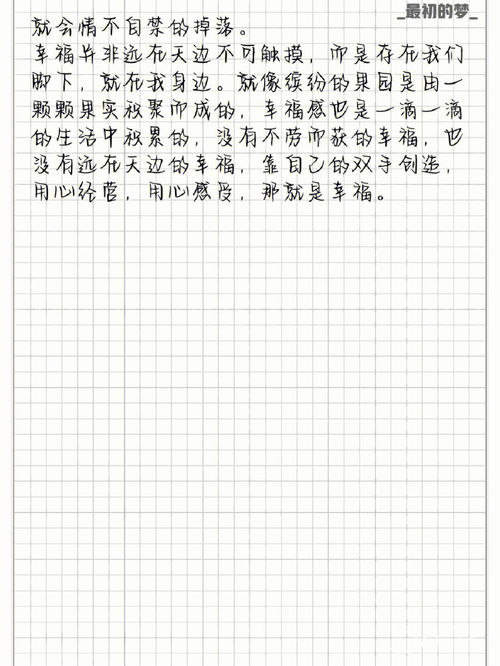 _最初的梦_
就会情不自禁的掉落。
幸福并非远在天边不可触摸，而是存在我们
脚下，就在我身边。就像缤纷的果园是由一
颗颗果实积聚而成的，幸福感也是一滴一滴
的生活中积累的，没有不劳而获的幸福，也
没有远在天边的幸福，靠自己的双手创造，
用心经营，用心感受，那就是幸福。